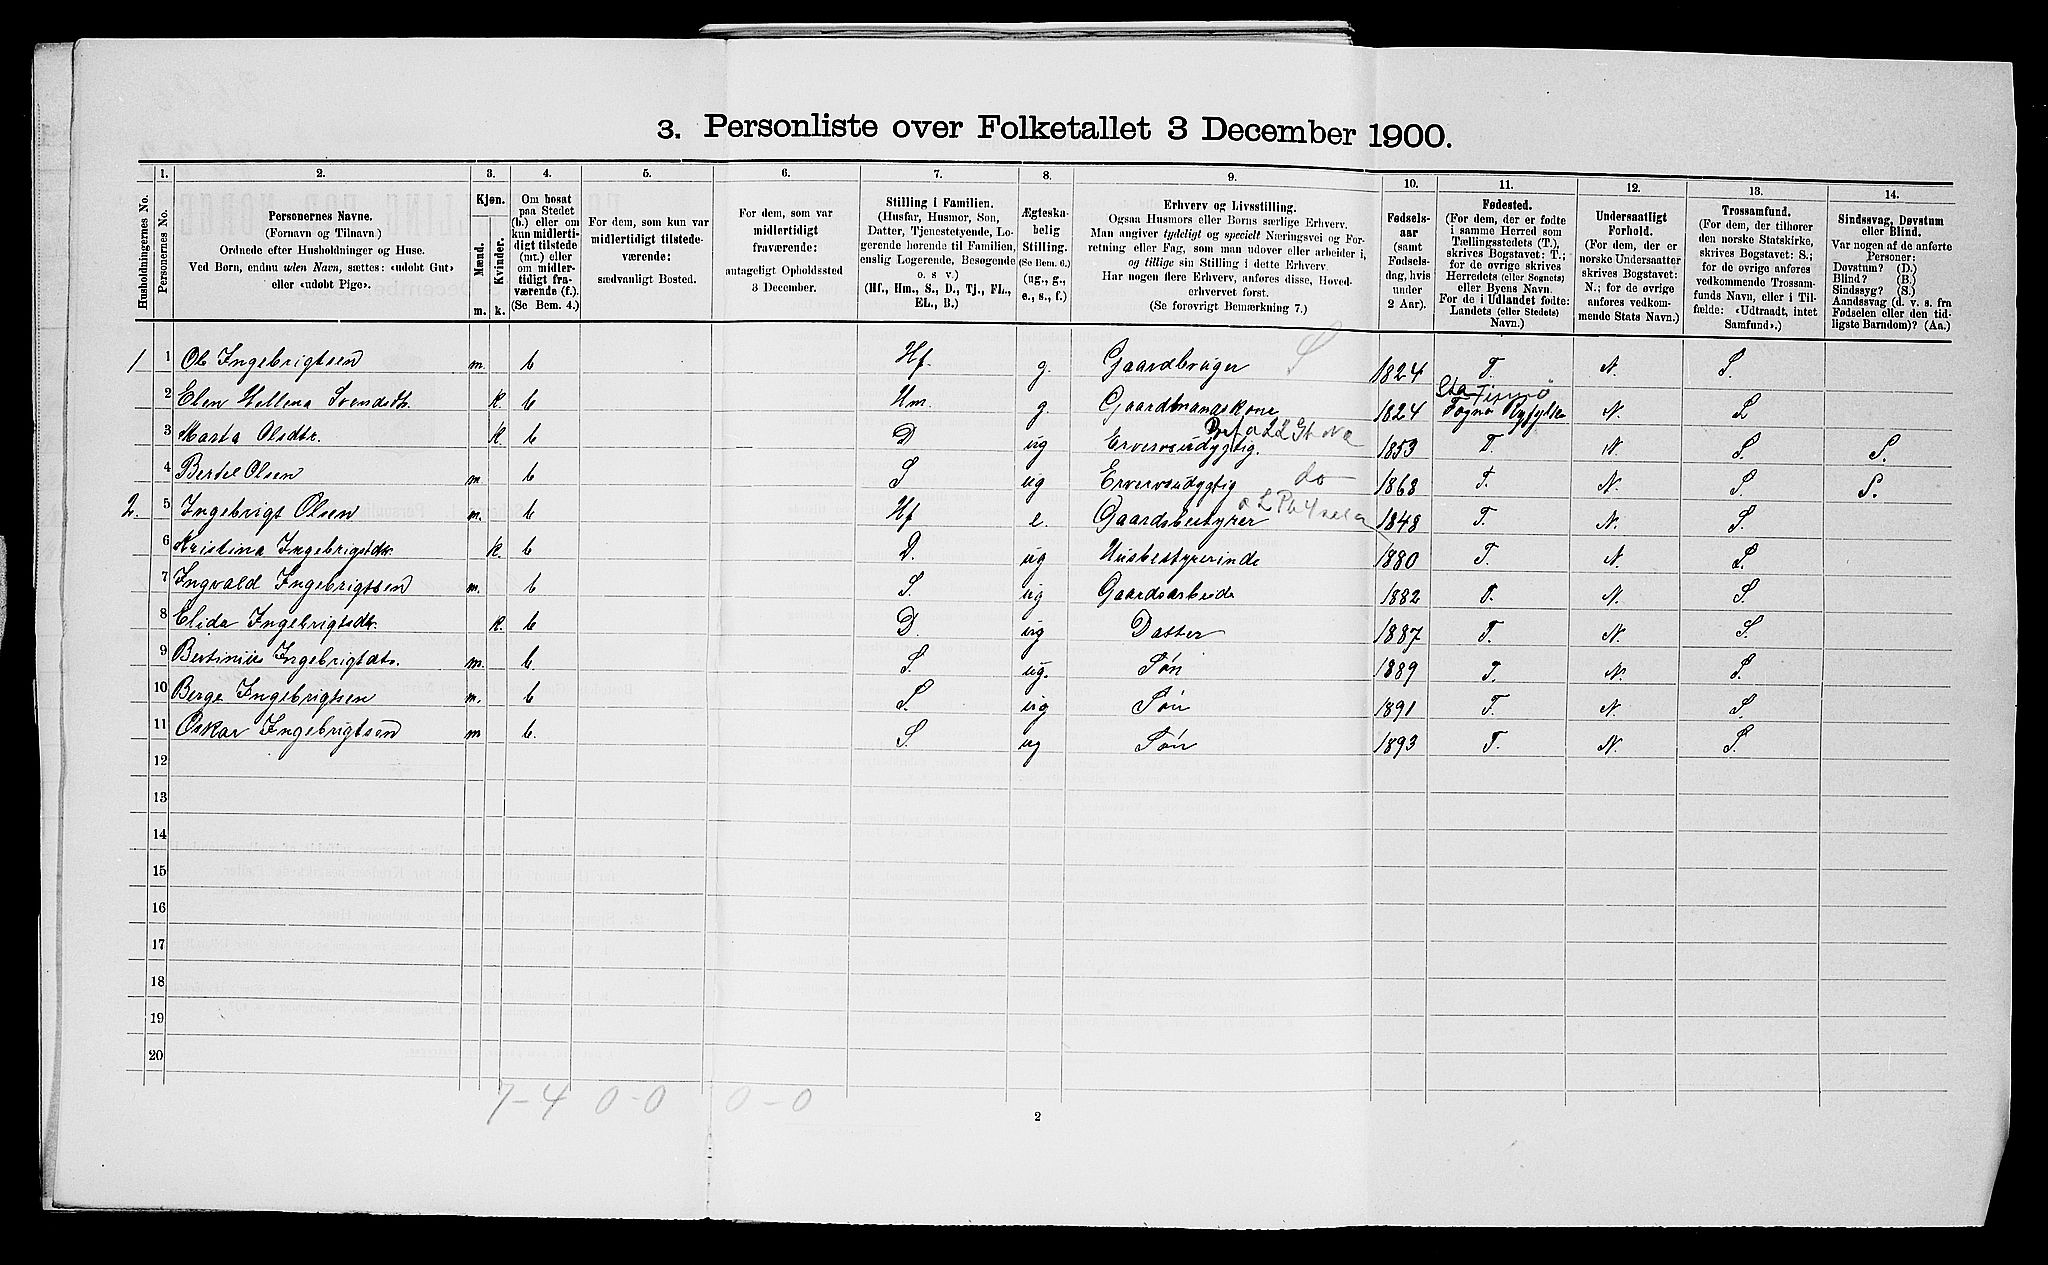 3. Personliste over Folketallet 3 December 1900.
Husholdningernes No.
1. Personernes No.
2. Personernes Navne. (Fornavn og Tilnavn.) Ordnede efter Husholdninger og Huse. Ved Børn, endnu uden Navn, sættes: «udøbt Gut» eller «udøbt Pige».
3. Kjøn. Mænd. Kvinder. m. k.
4. Om bosat paa Stedet (b.) eller om kun midlertidigt tilstede (mt.) eller om midlertidigt fraværende (f.). (Se Bem. 4.)
5. For dem, som kun var midlertidigt tilstedeværende: sædvanligt Bosted.
6. For dem, som var midlertidigt fraværende: antageligt Opholdssted 3 December.
7. Stilling i Familien. (Husfar, Husmor, Søn, Datter, Tjenestetyende, Logerende hørende til Familien, enslig Logerende, Besøgende o. s v.) (Hf., Hm., S., D., Tj., FL., EL., B.)
8. Ægteskabelig Stilling. (Se Bem. 6.) (ug., g., e., s., f.)
9. Erhverv og Livsstilling. Ogsaa Husmors eller Børns særlige Erhverv. Man angiver tydeligt og specielt Næringsvei og Forretning eller Fag, som man udøver eller arbeider i, og tillige sin Stilling i dette Erhverv. Har nogen flere Erhverv, anføres disse, Hovederhvervet først. (Se forøvrigt Bemærkning 7.)
10. Fødselsaar (samt Fødselsdag, hvis under 2 Aar).
11. Fødested. (For dem, der er fødte i samme Herred som Tællingsstedets (T.), skrives Bogstavet: T.; for de øvrige skrives Herredets (eller Sognets) eller Byens Navn. For de i Udlandet fødte: Landets (eller Stedets) Navn.)
12. Undersaatligt Forhold. (For dem, der er norske Undersaatter skrives Bogstavet: N.; for de øvrige anføres vedkommende Stats Navn.)
13. Trossamfund. (For dem, der tilhører den norske Statskirke, skrives Bogstavet: S.; for de øvrige anføres vedkommende Trossamfunds Navn, eller i Tilfælde: «Udtraadt, intet Samfund».)
14. Sindssvag, Døvstum eller Blind. Var nogen af de anførte Personer: Døvstum? (D.) Blind? (B.) Sindssyg? (S.) Aandssvag (d. v. s. fra Fødselen eller den tidligste Barndom)? (Aa.)
1 1 Ole Ingebrigtsen m. b Hf. g. Gaardbruger 1824 T. N. S.
2 Elen Hellena Svendsdtr. k. b Hm. g. Gaardmandskone 1824 Fogno Ryfylke N. S
3 Marta Olsdtr. k. b D ug Erverosudygtig. 1853 T. N. S. S.
4 Bertel Olsen m. b S ug Erverosudygtig do 1868 T. N. S. S.
2. 5 Ingebrigt Olsen m. b Hf e. Gaardsbestyrer 1848 T. N. S.
6 Kristina Ingebrigtsdtr. k. b D. ug Husbestyrerinde 1880 T. N. S.
7 Ingvald Ingebrigtsen m. b S. ug Gaardsarbeide 1882 T. N. S.
8 Elida Ingebrigtsdtr. k. b D. ug Datter 1887 T. N. S.
9 Bertinius Ingebrigtdts. m. b. S. ug. Søn 1889 T. N. S.
10 Berge Ingebrigtsen m. b S. ug Søn 1891 T. N. S.
11 Oskar Ingebrigtsen m b. S. ug Søn 1893 T. N. S.
12
13
14
15
16
17
18
19
20
7-4 0-0 0-0
2